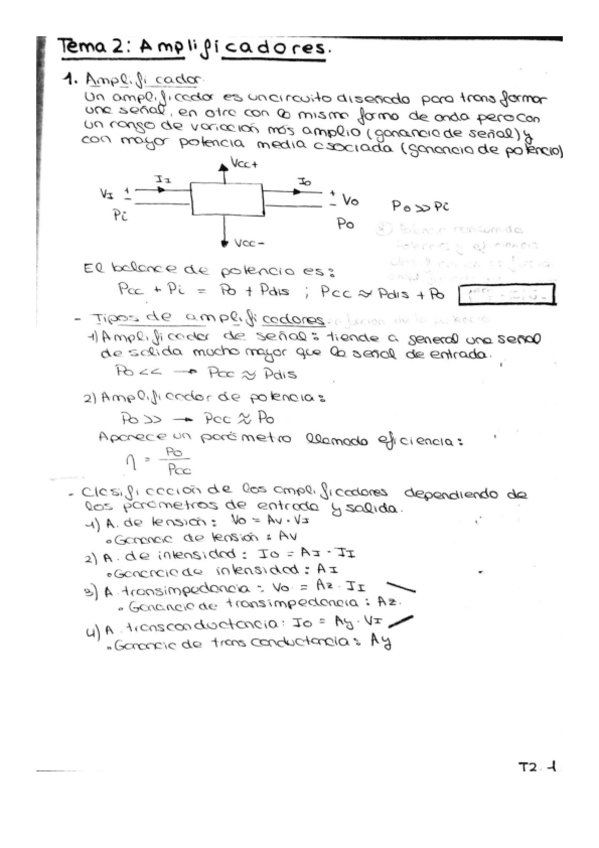 Tema 2: Amplificadores.
1. Amplificador.
Un amplificador es un circuito diseñado para transformar
una señal, en otra con la misma forma de onda pero con
un rango de variación más amplio (ganancia de señal) y
con mayor potencia media asociada (ganancia de potencia)
Vcc+
II Io
VI + - + - Vo Po >> Pi
Pi Po
Vcc-
El balance de potencia es:
Pcc + Pi = Po + Pdis ; Pcc ≈ Pdis + Po
- Tipos de amplificadores
1) Amplificador de señal: tiende a general una señal
de salida mucho mayor que la señal de entrada.
Po << → Pcc ≈ Pdis
2) Amplificador de potencia:
Po >> → Pcc ≈ Po
Aparece un parámetro llamado eficiencia:
η = Po / Pcc
- Clasificación de los amplificadores dependiendo de
los parámetros de entrada y salida.
1) A. de tensión: Vo = Av · VI
◦ Ganancia de tensión: Av
2) A. de intensidad: Io = AI · II
◦ Ganancia de intensidad: AI
3) A. transimpedancia: Vo = Az · II
◦ Ganancia de transimpedancia: Az.
4) A. transconductancia: Io = Ay · VI
◦ Ganancia de transconductancia: Ay
T2.1